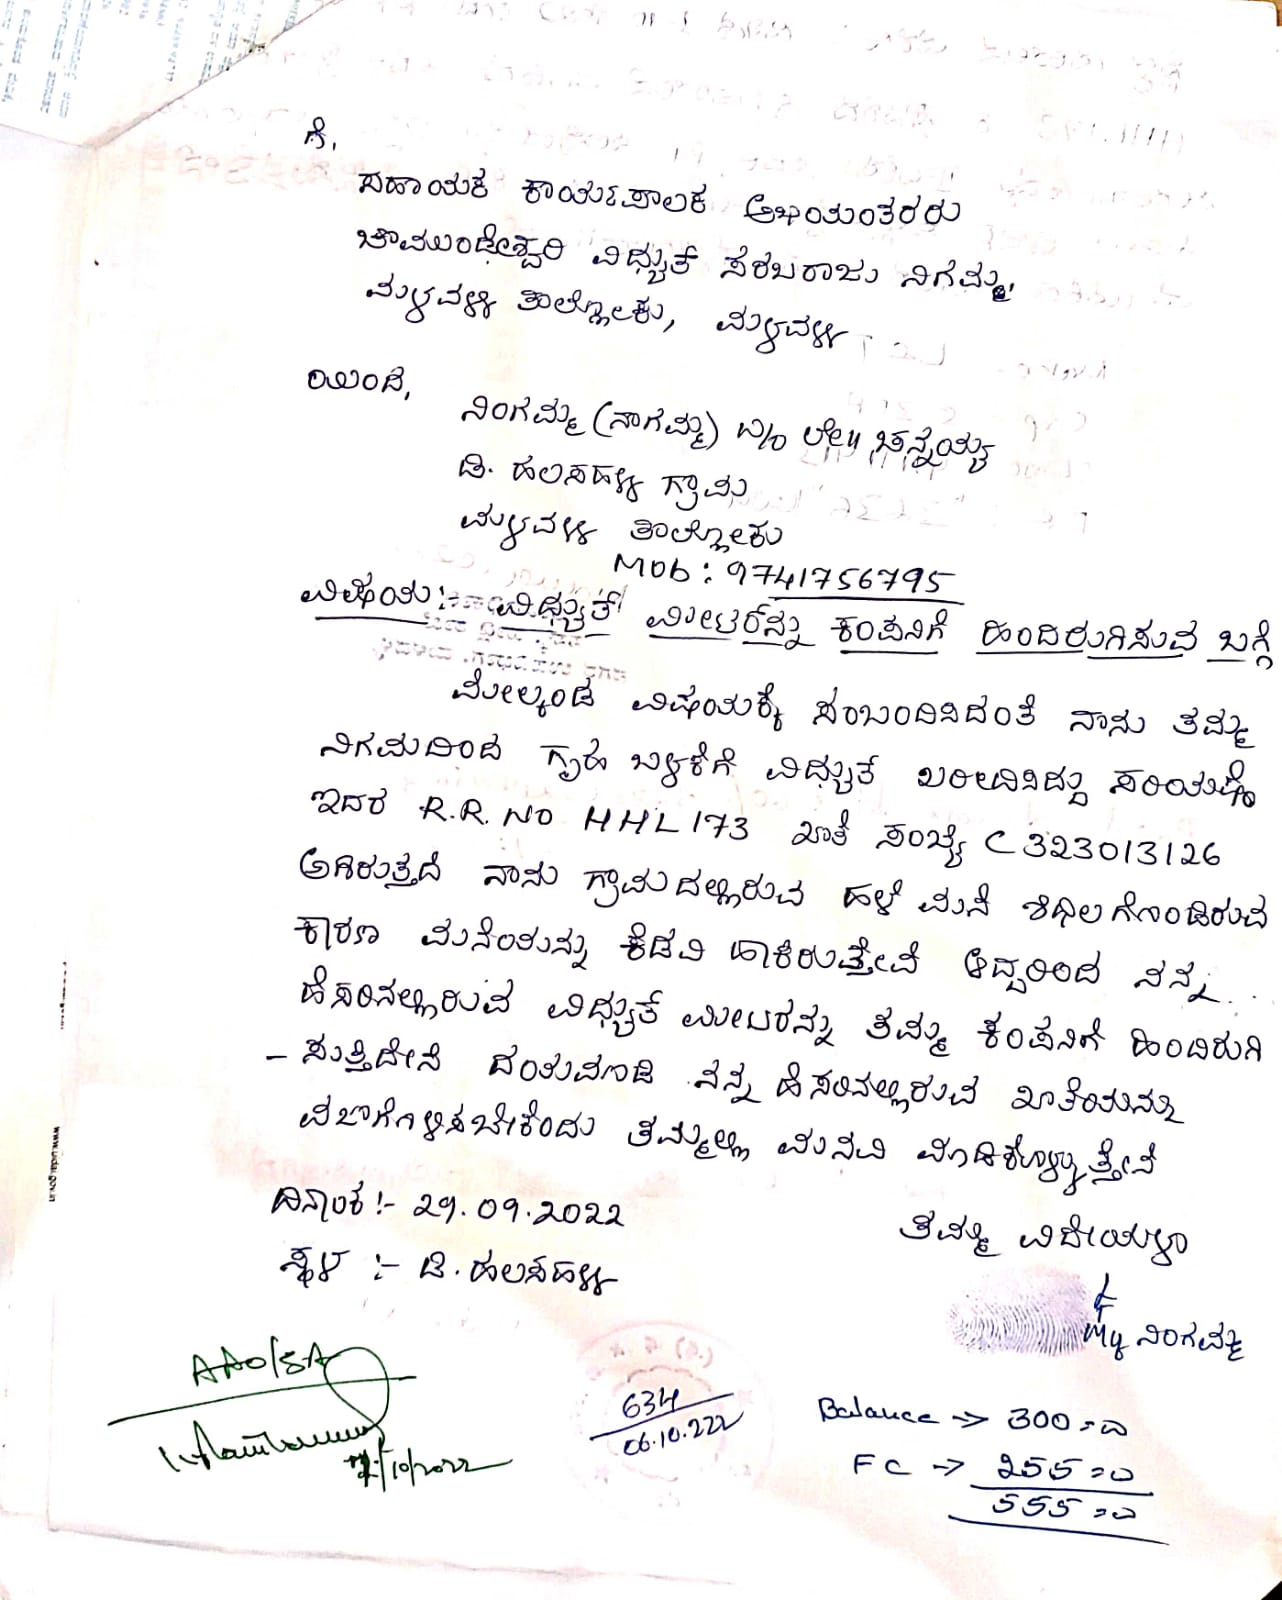 ಗೆ,
ಸಹಾಯಕ ಕಾರ್ಯಪಾಲಕ ಅಭಿಯಂತರರು
ಚಾಮುಂಡೇಶ್ವರಿ ವಿಧ್ಯುತ್ ಸರಬರಾಜು ನಿಗಮ್ಮ,
ಮಳವಳ್ಳಿ ತಾಲ್ಲೋಕು, ಮಳವಳ್ಳಿ
ಯಿಂದ,
ನಿಂಗಮ್ಮ (ನಾಗಮ್ಮ) W/o ಲೇ|| ಚನ್ನಯ್ಯ
ಡಿ. ಹಲಸಹಳ್ಳಿ ಗ್ರಾಮ
ಮಳವಳ್ಳಿ ತಾಲ್ಲೋಕು
Mob: 9741756795
ವಿಷಯ:- ವಿಧ್ಯುತ್ ಮೀಟರ್‌ನ್ನು ಕಂಪನಿಗೆ ಹಿಂದಿರುಗಿಸುವ ಬಗ್ಗೆ
ಮೇಲ್ಕಂಡ ವಿಷಯಕ್ಕೆ ಸಂಬಂದಿಸಿದಂತೆ ನಾನು ತಮ್ಮ
ನಿಗಮದಿಂದ ಗೃಹ ಬಳಕೆಗೆ ವಿಧ್ಯುತ್ ಖರೀದಿಸಿದ್ದು ಸರಿಯಷ್ಟೆ
ಇದರ R.R. NO HHL 173 ಖಾತೆ ಸಂಖ್ಯೆ C 323013126
ಆಗಿರುತ್ತದೆ ನಾನು ಗ್ರಾಮದಲ್ಲಿರುವ ಹಳೆ ಮನೆ ಶಿಥಿಲಗೊಂಡಿರುವ
ಕಾರಣ ಮನೆಯನ್ನು ಕೆಡವಿ ಹಾಕಿರುತ್ತೇವೆ ಆದ್ದರಿಂದ ನನ್ನ
ಹೆಸರಿನಲ್ಲಿರುವ ವಿಧ್ಯುತ್ ಮೀಟರನ್ನು ತಮ್ಮ ಕಂಪನಿಗೆ ಹಿಂದಿರುಗಿ
- ಸುತ್ತಿದೇನೆ ದಯಮಾಡಿ ನನ್ನ ಹೆಸರಿನಲ್ಲಿರುವ ಖಾತೆಯನ್ನು
ವಜಾಗೊಳಿಸಬೇಕೆಂದು ತಮ್ಮಲ್ಲಿ ಮನವಿ ಮಾಡಿಕೊಳ್ಳುತ್ತೇನೆ
ದಿನಾಂಕ:- 29.09.2022
ಸ್ಥಳ :- ಡಿ. ಹಲಸಹಳ್ಳಿ
ತಮ್ಮ ವಿದೇಯಳು
ನಿಂಗಮ್ಮ
AAO/SA
7/10/2022
634
06.10.222
Balance → 300=0
FC → 255=0
555=0